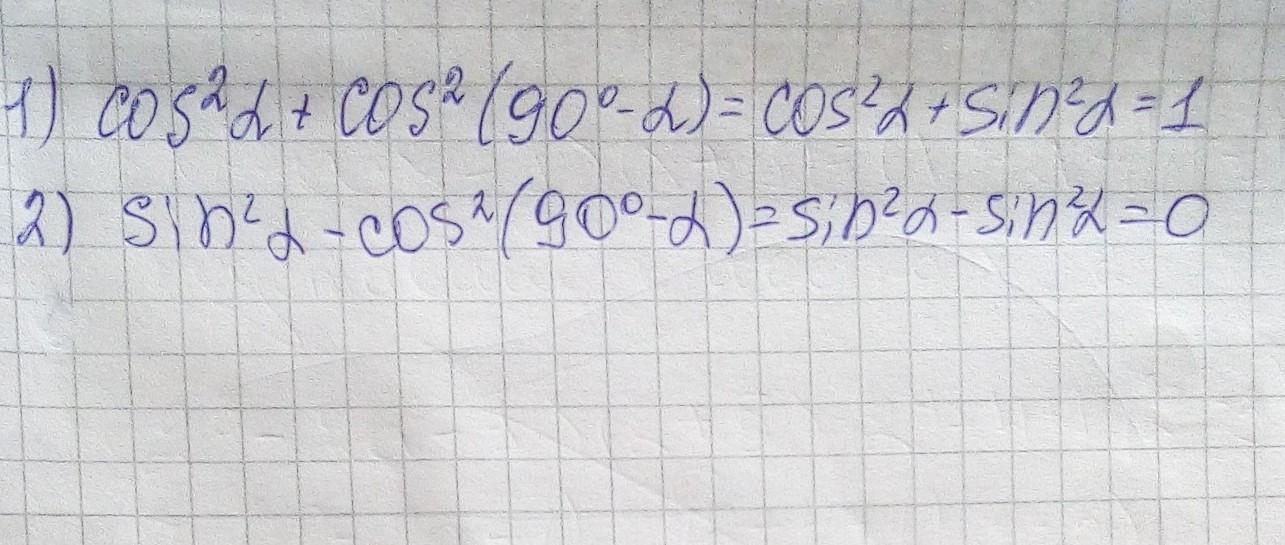 1) cos²α + cos²(90°-α)= cos²α + sin²α = 1
2) sin²α - cos²(90°-α)= sin²α - sin²α = 0